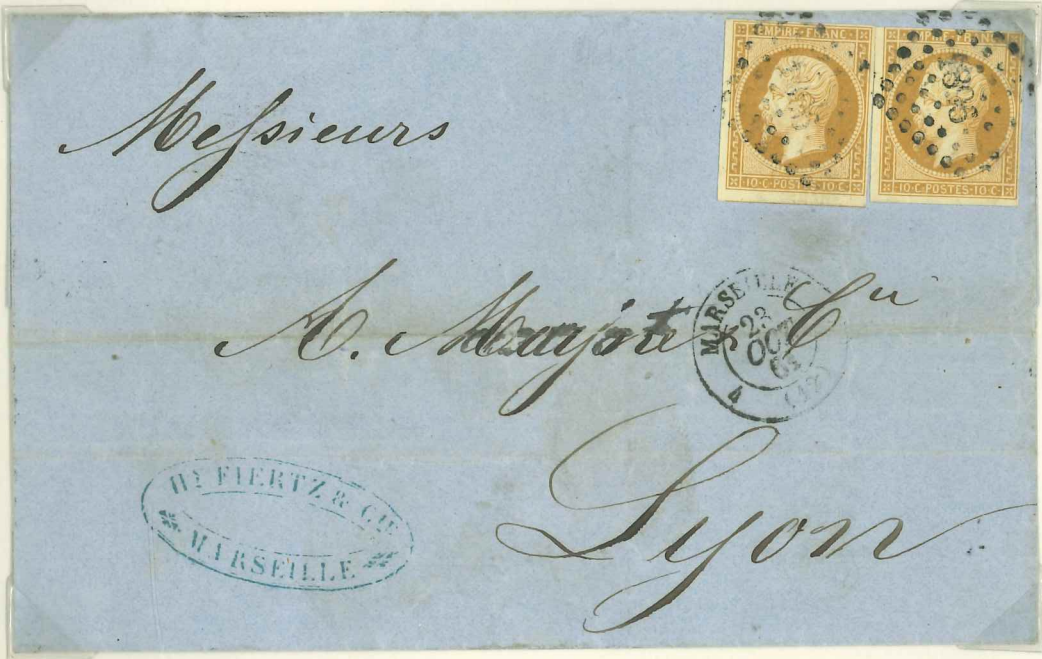 EMPIRE·FRANC·
10·C·POSTES·10·C
EMPIRE·FRANC·
10·C·POSTES·10·C
Messieurs
A. & Cie
MARSEILLE
23
OCT
4
Lyon
HY FIERTZ & CIE
MARSEILLE